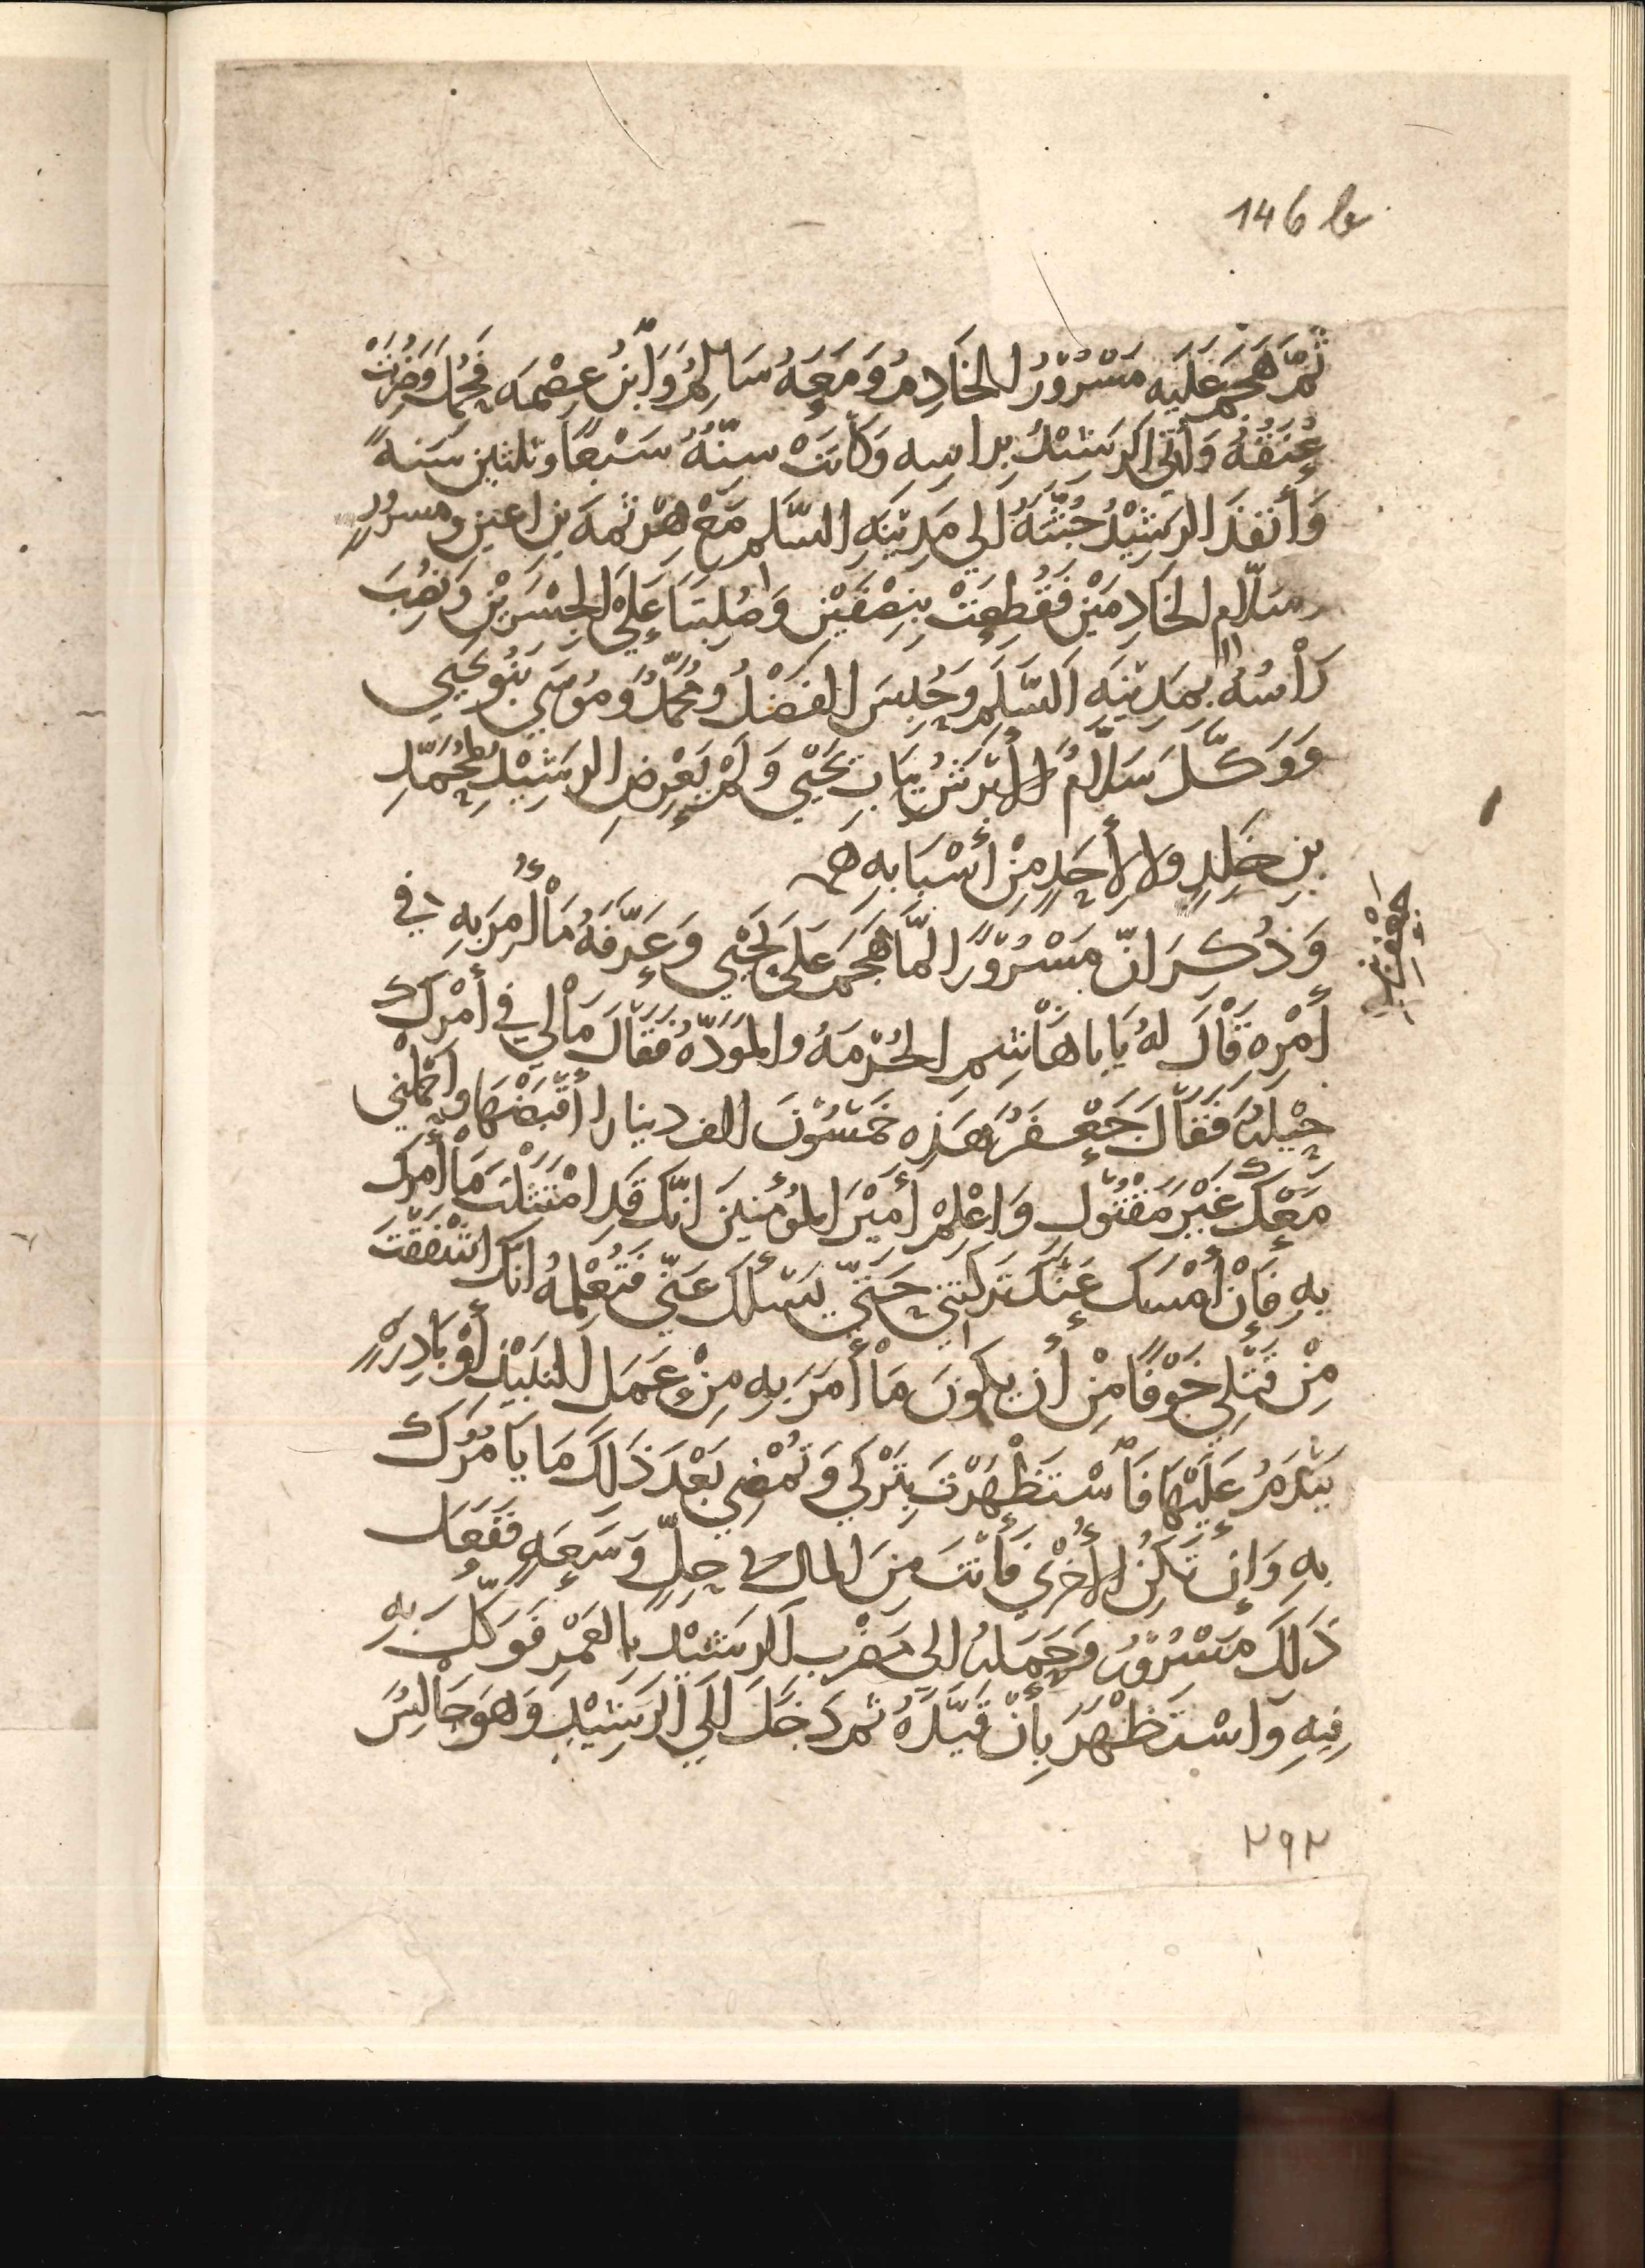 146 b
ثُمَّ هَجَمَ عَلَيَه مَسْرُوْرُ الخَادِمُ وَمَعَهُ سَالِمُ وَابْنُ عِصْمَه فَحُمِلَ وَضُرِبَتْ
عُنُقُهُ وَأُتِيَ الرَشيْدُ بِراسِهِ وَكَانَتْ سِنّهُ سَبْعًا وثلثين سَنَةً
وَأَنفَذَ الرَشِيْدُ جُثَّتَهُ الي مَدِيْنَهِ السَّلَمِ مَعَ هَرْثمهَ بن اعين ومسرُورٍ
وسَلّام الخَادِمَيْنِ فَقُطِعَتْ بِنِصْفَيْنِ وَصُلِبَتَا عَلَي الجِسْرَيْنِ وَنُصُِبَ
رَأْسُهُ بِمَدِيْنَهِ السَّلَمِ وَحُبِسَ الفَضْلُ ومُحَمَّدُ وَمُوْسَي بَنُو يَحْيَي
وَوَكَّلَ سَلَّامُ الأَبْرَشُ بِبَابِ يَحْيَي وَلَمْ يَعْرِضِ الرشِيْدُ لِمُحَمَّدِ
بنِ خَلِدٍ ولا لأَحَدٍ مِنْ أَسْبَابِهِ
وَذُكِرَ انّ مَسْرُوْرًا لمّا هَجَمَ عَلَى يَحْيَي وَعَرَّفَهُ مَا أُمِرَ بِهِ في
جعفر بن يحيى
أَمْرِهِ قَالَ لهُ يَابا هَاشِمِ الحُرْمَهُ والمَوَدَّهُ فَقَالَ مَا لِي في أَمْرِكَ
حِيْلَهُ فَقَالَ جَعْفَرُ هَذِهِ خَمْسُوْنَ الف دينار اقْبَضْهَا واحْمِلْني
مَعَكَ غَيْرَ مَقْتُوْلٍ وَاعْلِمْ أَمِيْرَ المؤُمِنِينَ انّكَ قَدِ امْتَثَلْتَ مَا أَمَرَكَ
بِهِ فَإِنْ أَمْسَكَ عَنْكَ تَرَكْتَنِي حَتَّي يَسْأَلَكَ عَنّي فَتُعْلِمُهُ انّكَ اشْفَقْتَ
مِنْ قَتْلِي خَوْفًا مِنْ أَن يكونَ مَا أَمَرَ بِهِ مِنْ عَمَلِ النبيذِ أَوْ بَادِرَهٍ
يَنْدَمُ عَلَيْهَا فَاْسْتَظْهَرْتَ بِتَرْكِي وَتُمْضِي بَعْدَ ذَلكَ مَا يَا مُرُكَ
بِهِ وَإِن تَكُنِ الأُخْرَي فَأَنْتَ مِنَ المالِ في حِلٍّ وَسَعَهٍ فَفَعَلَ
ذَلِكَ مَسْرُوْرُ وَحَمَلَهُ الي مَضْرِبِ الرَشيْدِ بِالعُمْرِ فَوَكّلَ بِهِ
فِيهِ وَاسْتَظْهَرَ بِأَنْ قَيَّدَهُ ثم دَخَلَ الَي الرَشِيْدِ وَهوَ جَالِسُ
٢٩٢